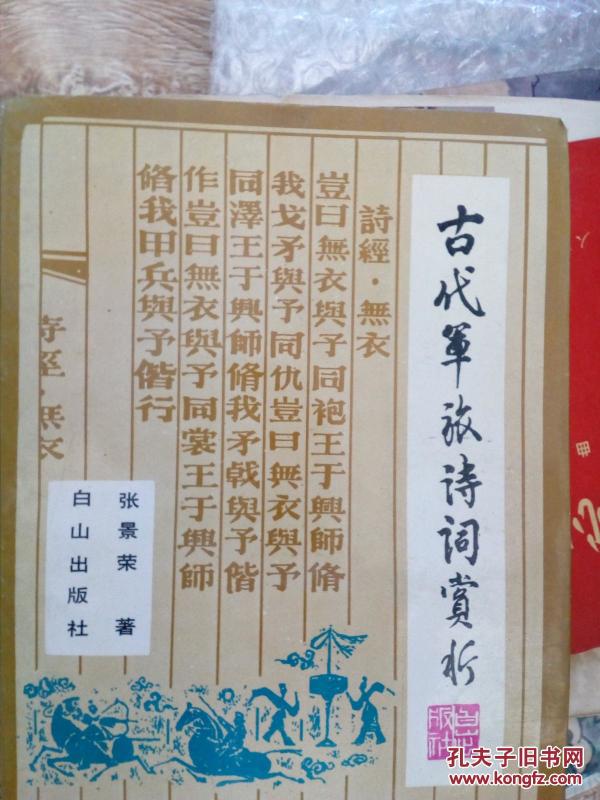 古代軍旅诗词赏析
詩經·無衣
豈曰無衣與子同袍王于興師脩
我戈矛與予同仇豈曰無衣與予
同澤王于興師脩我矛戟與予偕
作豈曰無衣與予同裳王于興師
脩我甲兵與予偕行
詩經·無衣
张景荣 著
白山出版社
人
曲
孔夫子旧书网
www.kongfz.com